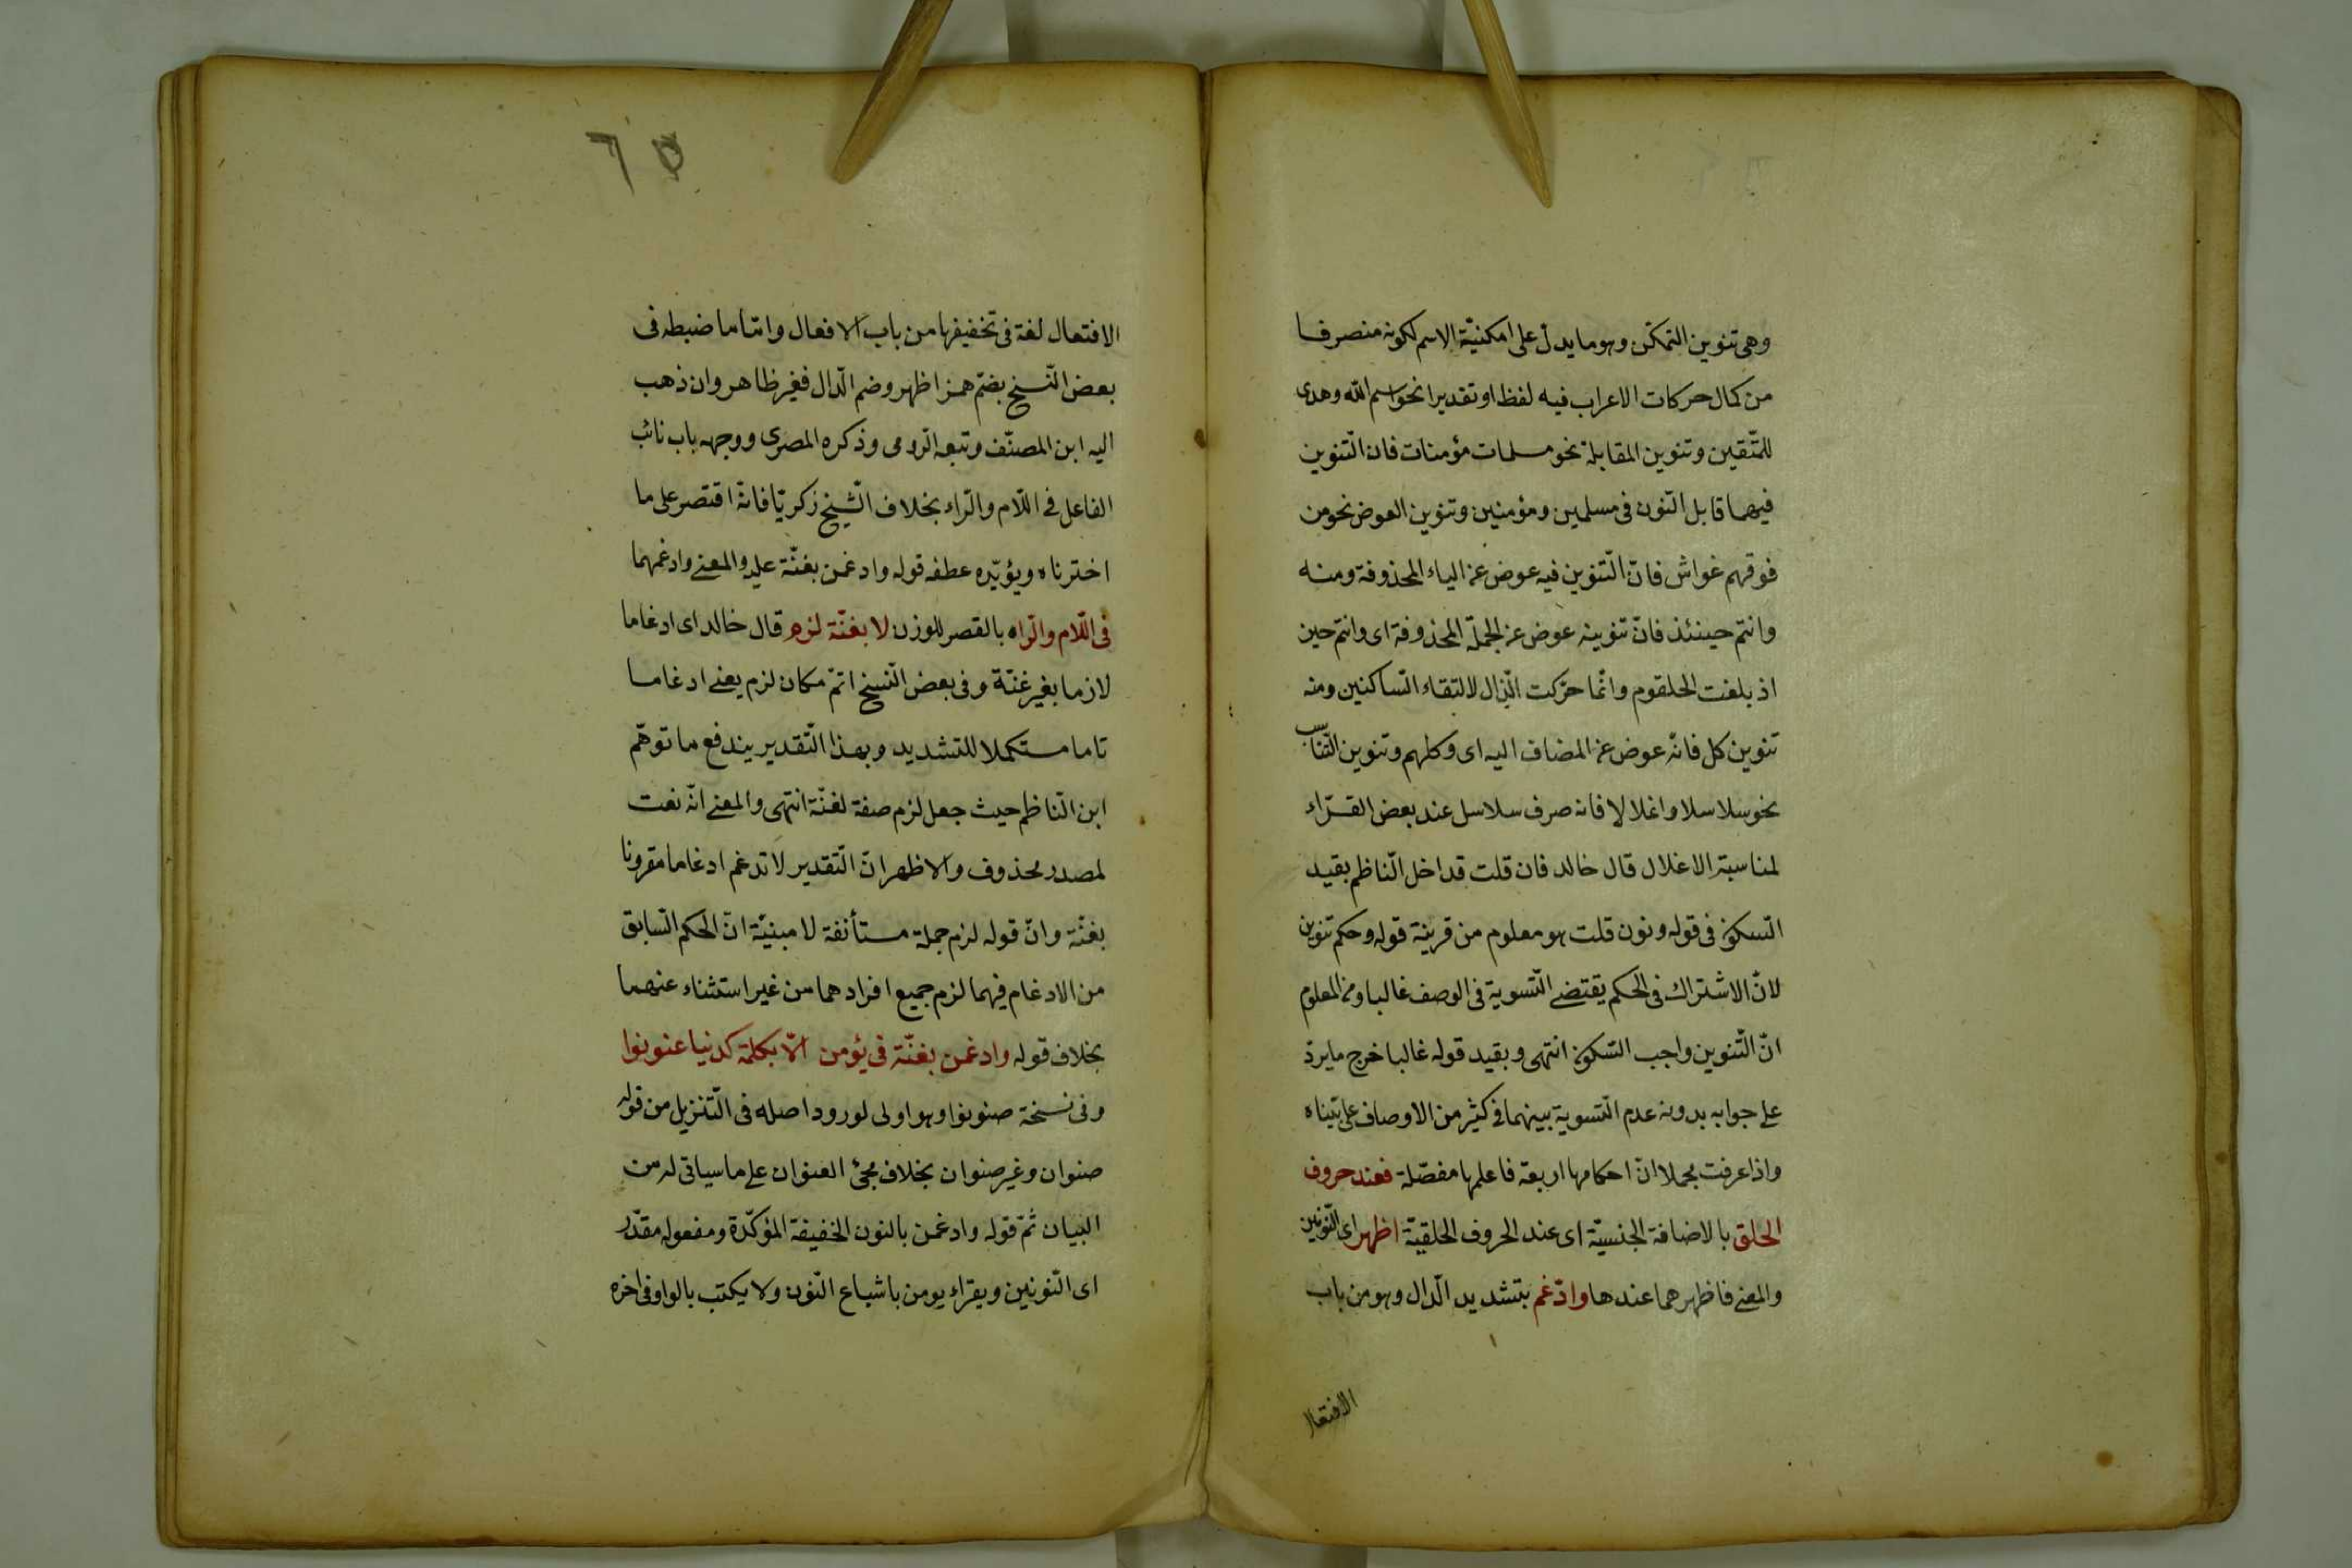 وهى تنوين التمكّن وهو ما يدلّ على امكنيّة الاسم لكونه منصرفا
من كمال حركات الاعراب فيه لفظا او تقديرا نحو اسم الله وهدى
للمتّقين وتنوين المقابلة نحو مسلمات مؤمنات فان التّنوين
فيهما قابل النّون فى مسلمين ومؤمنين وتنوين العوض نحو من
فوقهم غواش فانّ التّنوين فيه عوض عن الياء المحذوفة ومنه
وانتم حينئذ فانّ تنوينه عوض عن الجملة المحذوفة اى وانتم حين
اذ بلغت الحلقوم وانّما حرّكت الذّال لالتقاء السّاكنين ومنه
تنوين كل فانّه عوض عن المضاف اليه اى وكلهم وتنوين التّناسب
نحو سلاسلا واغلالا فانه صرف سلاسل عند بعض القرّاء
لمناسبة الاغلال قال خالد فان قلت قد اخل النّاظم بقيد
السّكون فى قوله ونون قلت هو معلوم من قرينة قوله وحكم تنوين
لانّ الاشتراك فى الحكم يقتضى التّسوية فى الوصف غالبا ومن المعلوم
انّ التّنوين واجب السّكون انتهى وبقيد قوله غالبا خرج ما يرد
على جوابه بدونه عدم التّسوية بينهما فى كثير من الاوصاف على بيّناه
واذا عرفت مجملا انّ احكامها اربعة فاعلمها مفصّلة فعند حروف
الحلق بالاضافة الجنسيّة اى عند الحروف الحلقيّة اظهر اى النّونين
والمعنى فاظهرهما عندها وادّغم بتشديد الدّال وهو من باب
الافتعال
٦٥
الافتعال لغة فى تخفيفها من باب الافعال وامّا ما ضبطه فى
بعض النّسخ بضمّ همز اظهر وضم الدّال فغير ظاهر وان ذهب
اليه ابن المصنّف وتبعه الرّومى وذكره المصرى ووجهه باب نائب
الفاعل فى اللّام والرّاء بخلاف الشّيخ زكريّا فانّه اقتصر على ما
اخترناه ويؤيّده عطفه قوله وادغمن بغنّة عليه والمعنى وادغمهما
فى اللّام والرّاه بالقصر للوزن لا بغنّة لزم قال خالد اى ادغاما
لازما بغير غنّة وفى بعض النّسخ اتمّ مكان لزم يعنى ادغاما
تاما مستكملا للتشديد وبهذا التّقدير يندفع ما توهّم
ابن النّاظم حيث جعل لزم صفة لغنّة انتهى والمعنى انّه نعت
لمصدر محذوف والاظهر انّ التّقدير لا تدغم ادغاما مقرونا
بغنّة وانّ قوله لزم جملة مستأنفة لا مبنيّة انّ الحكم السّابق
من الادغام فيهما لزم جميع افرادهما من غير استثناء عنهما
بخلاف قوله وادغمن بغنّة فى يؤمن الّا بكلمة كدنيا عنونوا
وفى نسخة صنونوا وهو اولى لورود اصله فى التّنزيل من قوله
صنوان وغير صنوان بخلاف مجئ العنوان على ما سياتى له من
البيان ثمّ قوله وادغمن بالنون الخفيفة المؤكّدة ومفعوله مقدّر
اى النّونين ويقراء يومن باشباع النّون ولا يكتب بالواو فى اخره